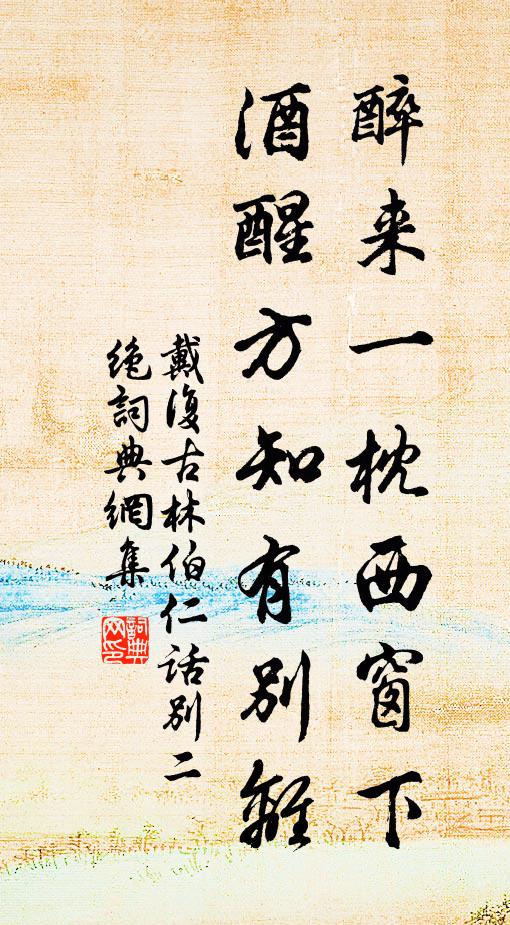 醉来一枕西窗下
酒醒方知有别離
戴復古林伯仁话别二
绝詞典網集
詞典网印